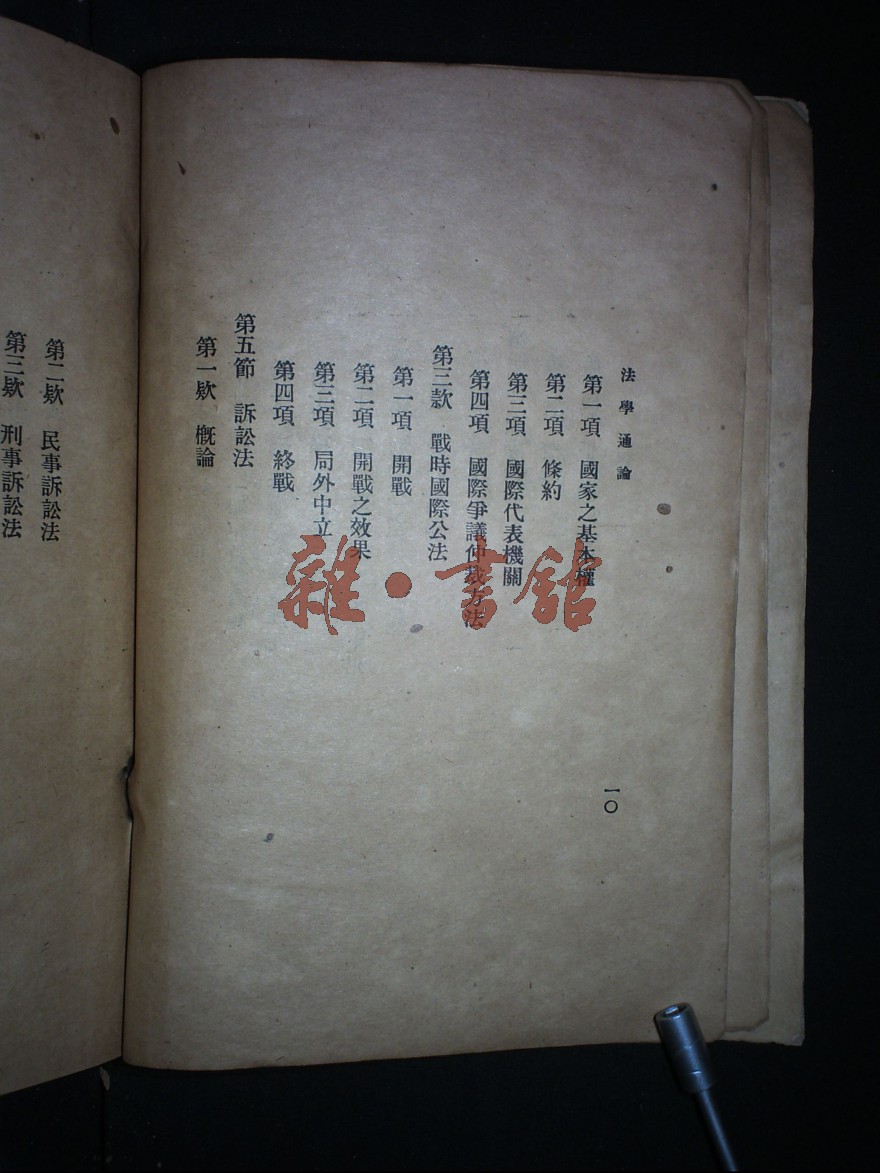 法學通論
第一項 國家之基本權
第二項 條約
第三項 國際代表機關
第四項 國際爭議仲裁方法
第三款 戰時國際公法
第一項 開戰
第二項 開戰之效果
第三項 局外中立
第四項 終戰
第五節 訴訟法
第一欵 概論
一〇
第二欵 民事訴訟法
第三欵 刑事訴訟法
雜·書館